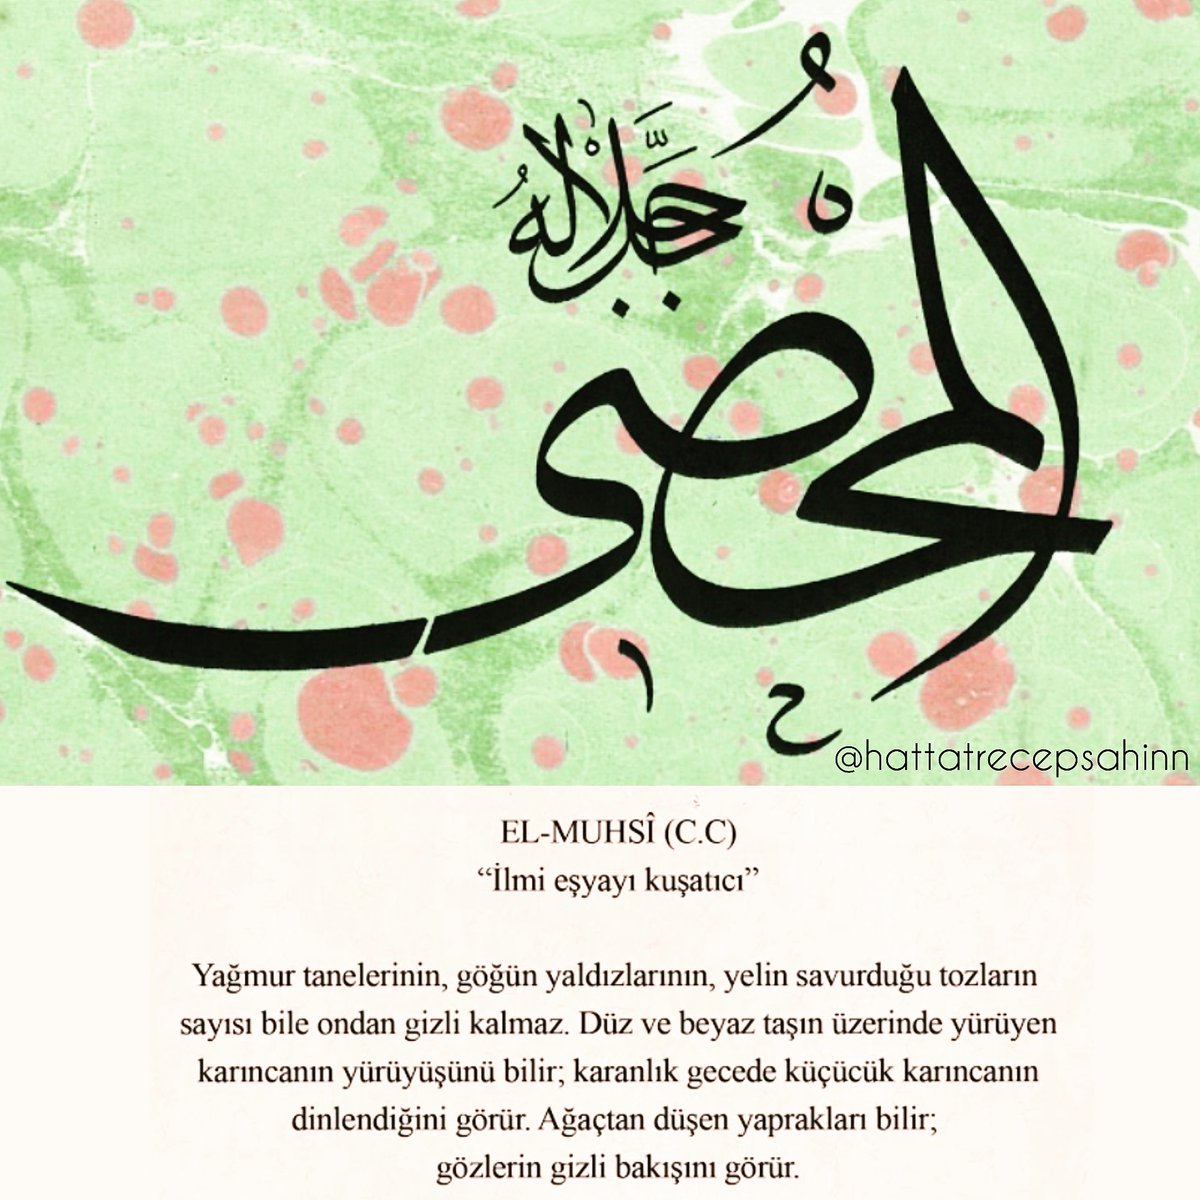 جل جلاله
المحصى
@hattatrecepsahinn
EL-MUHSÎ (C.C)
“İlmi eşyayı kuşatıcı”
Yağmur tanelerinin, göğün yaldızlarının, yelin savurduğu tozların
sayısı bile ondan gizli kalmaz. Düz ve beyaz taşın üzerinde yürüyen
karıncanın yürüyüşünü bilir; karanlık gecede küçücük karıncanın
dinlendiğini görür. Ağaçtan düşen yaprakları bilir;
gözlerin gizli bakışını görür.